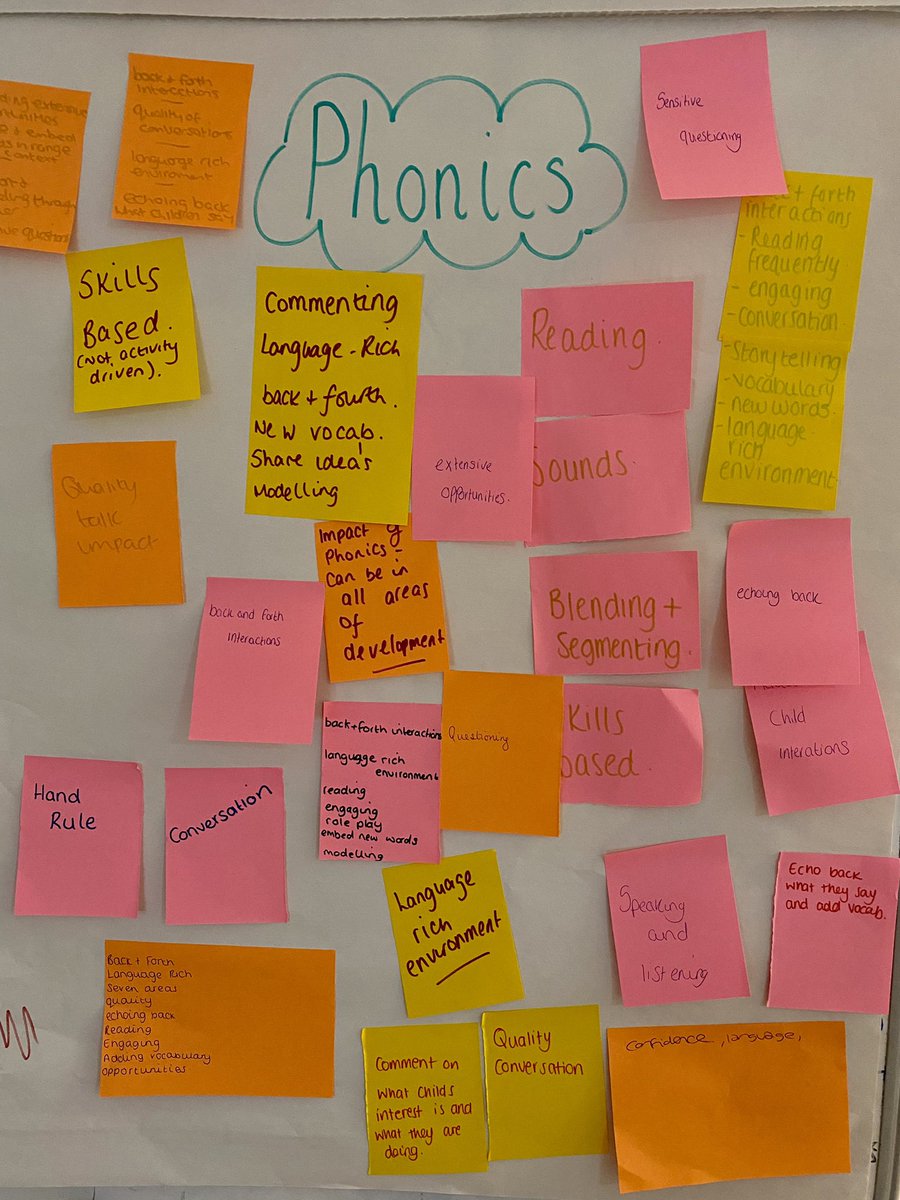 Phonics
back + forth
interactions
quality of
conversations
language rich
enviroment
echoing back
what children say
Sensitive
questioning
+ forth
interactions
- Reading
frequently
- engaging
- conversation
- Storytelling
- vocabulary
- new words
- language
rich
environment
Skills
Based.
(Not activity
driven).
Commenting
Language-Rich
back + fourth.
New vocab.
Share idea's
Modelling
extensive
opportunities.
Reading.
Sounds.
Blending +
Segmenting.
Skills
based.
Quality
talk
impact
Impact of
Phonics -
can be in
all areas
of
development
back and forth
interactions
echoing back
Child
interations
back+forth interactions
language rich
environment
reading
engaging
role play
embed new words
modelling
Questioning
Hand
Rule
Conversation
Language
rich
environment
Speaking
and
listening
Echo back
what they say
and add vocab.
Back + Forth
Language Rich
Seven areas
quality
echoing back
Reading
Engaging
Adding vocabulary
opportunities
Comment on
what childs
interest is and
what they are
doing.
Quality
Conversation
Confidence, language,